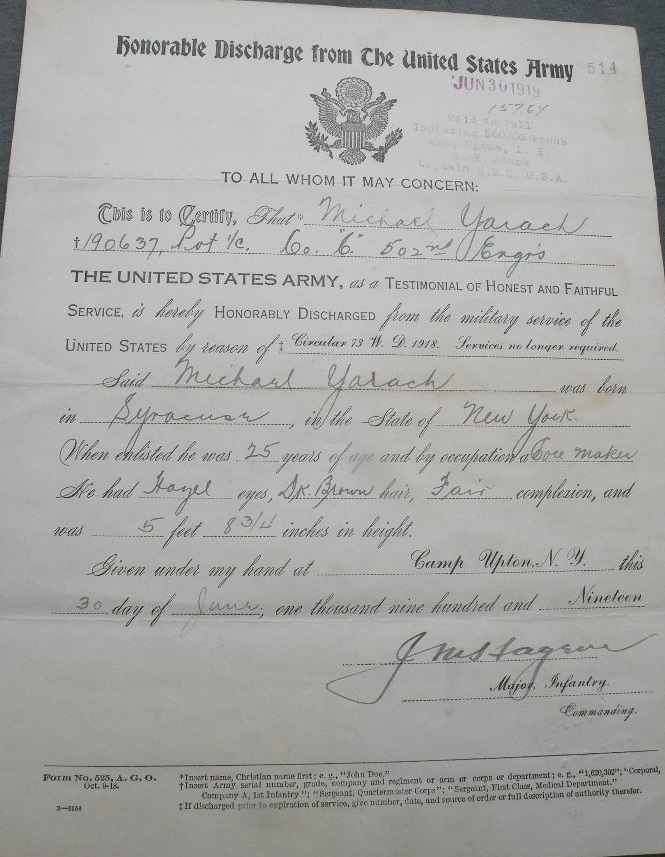 Honorable Discharge from The United States Army 514
JUN 30 1919
15764
Paid in full
Including $60.00 Bonus
Camp Upton, L. I.
Captain Q.M.C. U.S.A.
TO ALL WHOM IT MAY CONCERN:
This is to Certify, That* Michael Yarach
†190637, Pvt 1/c. Co. "C" 502nd Engrs
THE UNITED STATES ARMY, as a TESTIMONIAL OF HONEST AND FAITHFUL
SERVICE, is hereby HONORABLY DISCHARGED from the military service of the
UNITED STATES by reason of ‡ Circular 73 W. D. 1918. Services no longer required.
Said Michael Yarach was born
in Syracuse, in the State of New York.
When enlisted he was 25 years of age and by occupation a Core maker
He had Hazel eyes, Dk. Brown hair, Fair complexion, and
was 5 feet 8 3/4 inches in height.
Given under my hand at Camp Upton, N. Y. this
30 day of June, one thousand nine hundred and Nineteen
Major, Infantry.
Commanding.
Form No. 525, A. G. O.
Oct. 9-18.
3—3164
*Insert name, Christian name first; e. g., "John Doe."
†Insert Army serial number, grade, company and regiment or arm or corps or department; e. g., "1,620,302"; "Corporal,
Company A, 1st Infantry"; "Sergeant, Quartermaster Corps"; "Sergeant, First Class, Medical Department."
‡If discharged prior to expiration of service, give number, date, and source of order or full description of authority therefor.